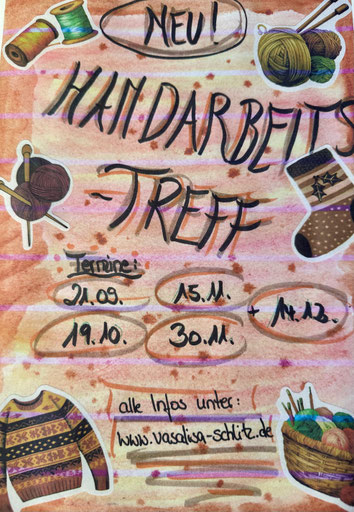 NEU!
HANDARBEITS
-TREFF
Termine:
21.09. 15.11. + 14.12.
19.10. 30.11.
alle Infos unter:
www.vasalisa-schlitz.de